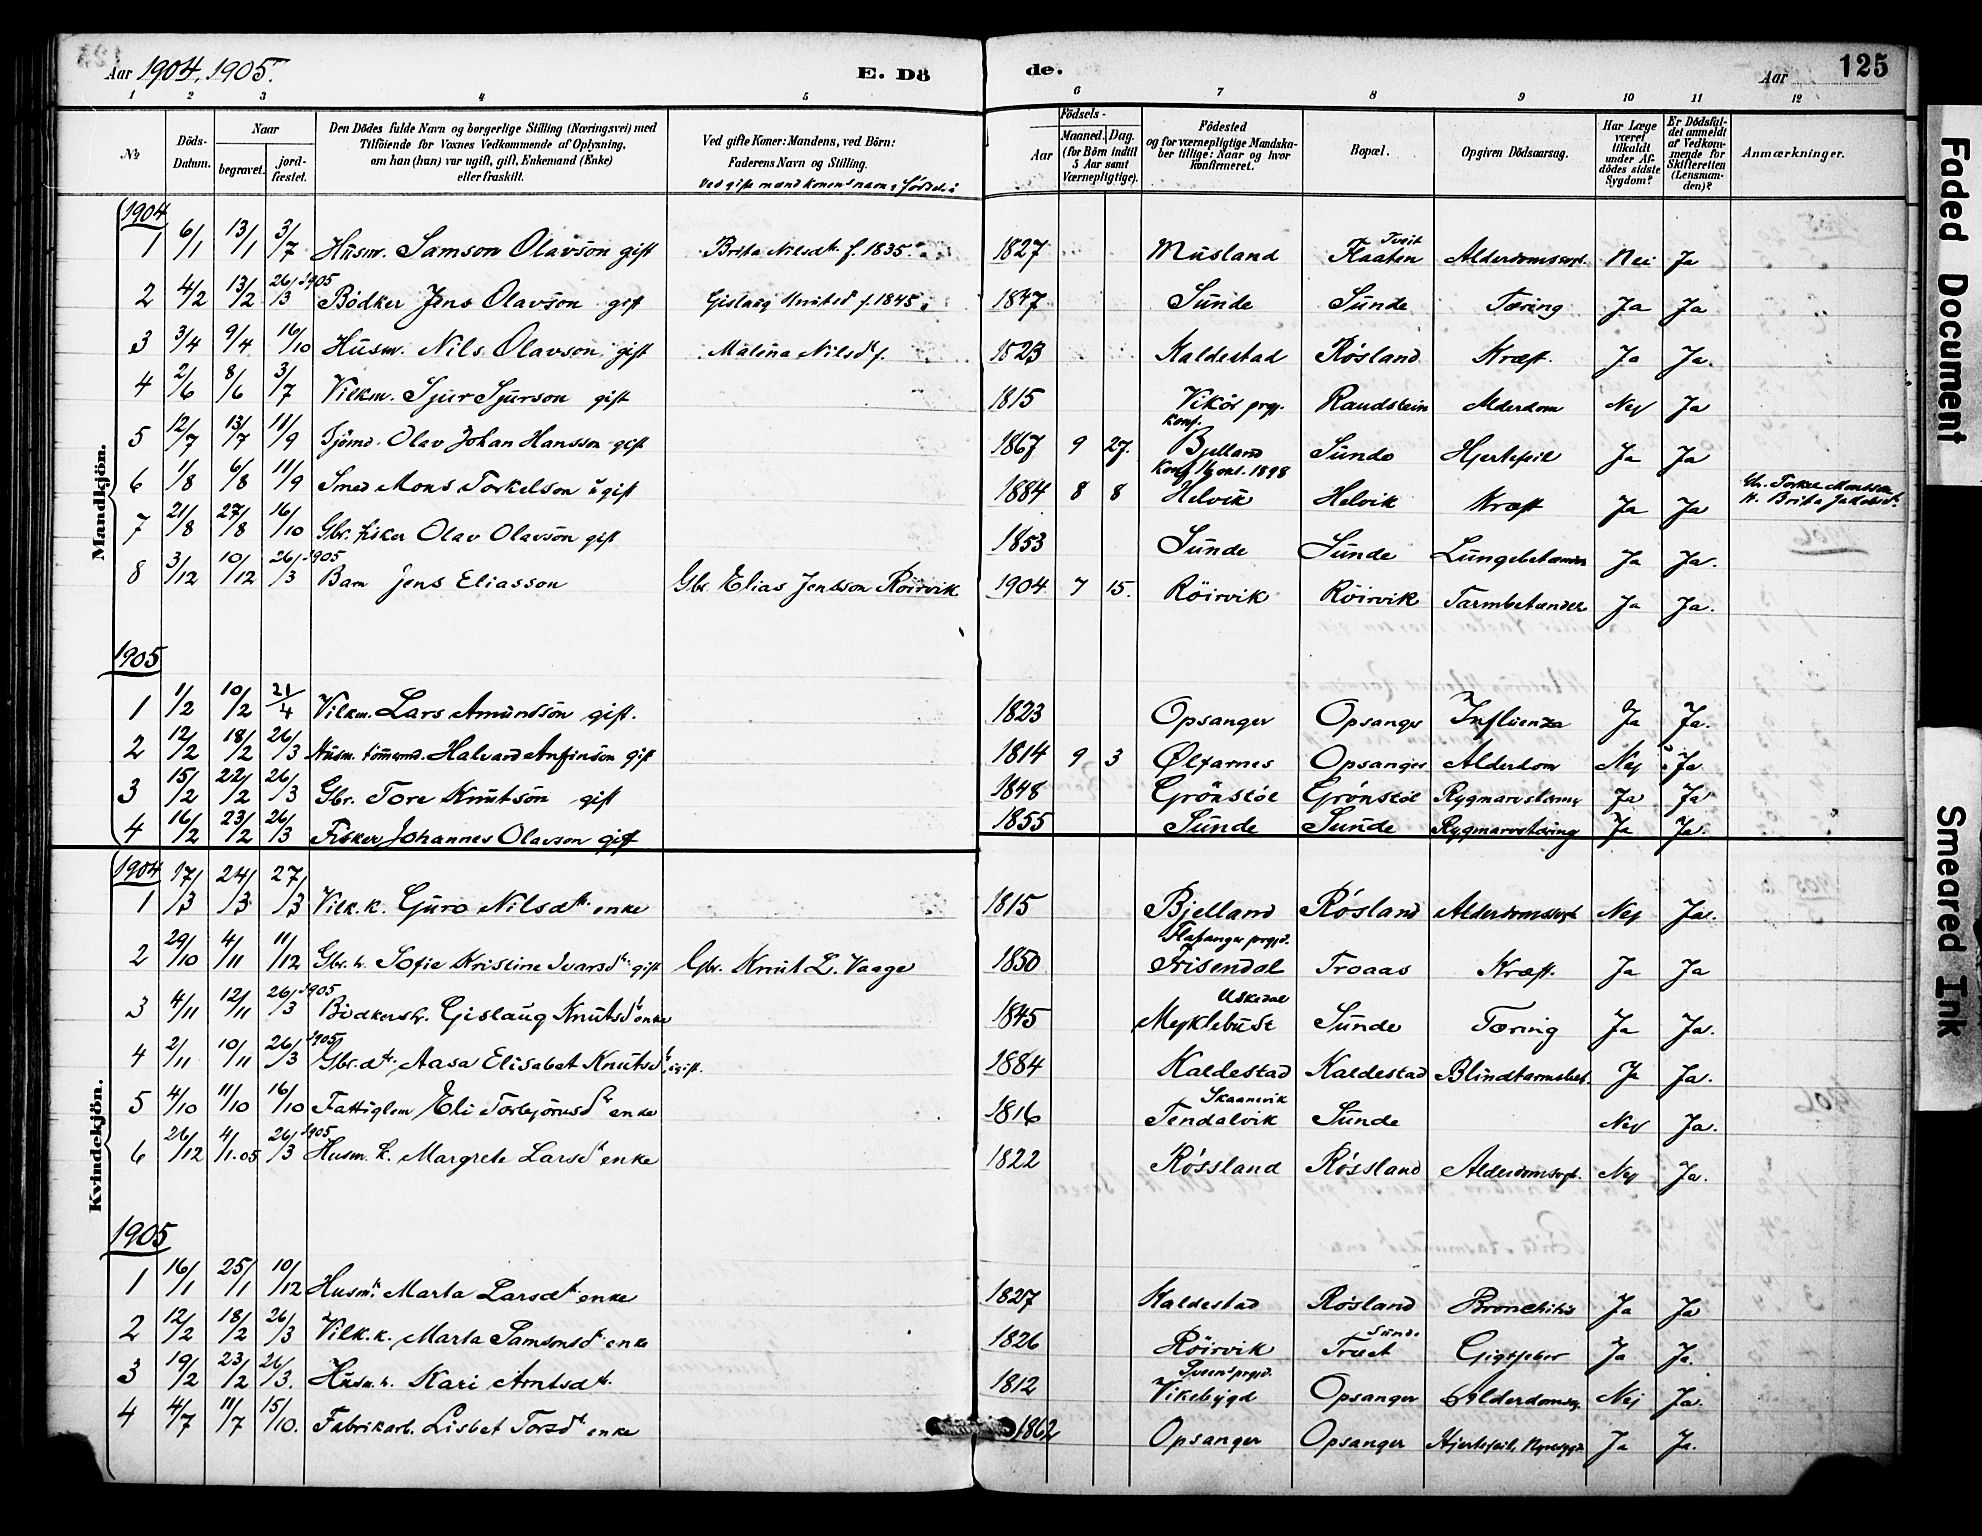 Aar 1904, 1905. E. Dö de. Aar 125
1 2 3 4 5 6 7 8 9 10 11 12
No Döds-Datum. Naar begravet. jord-fæstet. Den Dödes fulde Navn og borgerlige Stilling (Næringsvei) med Tilföiende for Voxnes Vedkommende af Oplysning, om han (hun) var ugift, gift, Enkemand (Enke) eller fraskilt. Ved gifte Koner: Mandens, ved Börn: Faderens Navn og Stilling. Ved gifte mænd konens navn Aar Födsels- Maaned. Dag. (for Börn indtil 5 Aar samt Værnepligtige). Födested og for værnepligtige Mandskaber tillige: Naar og hvor konfirmeret. Bopæl. Opgiven Dödsaarsag. Har Læge været tilkaldt under Afdödes sidste Sygdom? Er Dödsfaldet anmeldt af Vedkommende for Skifteretten (Lensmanden)? Anmærkninger.
Mandkjön.
1904
1 6/1 13/1 3/7 Husm. Samson Olavson gift Brita Nilsdt. f. 1835. 1827 Musland Tveit Flaaten Alderdomssvagh. Nei Ja
2 4/2 13/2 26/3 1905 Bödker Jens Olavson gift Gislaug Knutsd f. 1845. 1847 Sunde Sunde Tæring Ja Ja
3 3/4 9/4 16/10 Husm. Nils Olavson gift Malena Nilsd f. 1823 Kaldestad Rösland Kræft. Ja Ja.
4 2/6 8/6 3/7 Vilkm. Sjur Sjurson gift 1815 Vikör prgj. Raudstein Alderdom Nej Ja
5 12/7 13/7 11/9 Sjömd. Olav Johan Hansson gift 1867 9 27. konf. Bjelland Sunde Hjertefeil Ja Ja
6 1/8 6/8 11/9 Smed Mons Torkelson ugift 1884 8 8 Konf. 16 okt. 1898 Helvik Helvik Kræft Ja Ja Gbr. Torkel Monsson H. Brita Jakobsd.
7 21/8 27/8 16/10 Gbr. fisker Olav Olavson gift 1853 Sunde Sunde Lungebetænder Ja Ja.
8 3/12 10/12 26/3 1905 Barn Jens Eliasson Gbr. Elias Jensson Röirvik 1904 7 15. Röirvik Röirvik Tarmbetænder Ja Ja.
1905
1 1/2 10/2 21/4 Vilkm. Lars Amundson gift. 1823 Opsanger Opsanger Influenza Ja Ja.
2 12/2 18/2 26/3 Husm. tömmermd. Halvard Anfinson gift 1814 9 3 Ølfarnes Opsanger Alderdom Nej Ja
3 15/2 22/2 26/3 Gbr. Tore Knutson gift 1848 Grönstöl Grönstöl Rygmarvstæring Ja Ja
4 16/2 23/2 26/3 Fisker Johannes Olavson gift 1855 Sunde Sunde Rygmarvstæring Ja Ja.
Kvindekjön.
1904
1 17/3 24/3 27/3 Vilk. k. Guro Nilsdt. enke 1815 Bjelland Rösland Alderdomssvagh Nej Ja.
2 29/10 4/11 11/12 Gbr. h. Sofie Kristine Ivarsdt. gift Gbr. Knut L. Vaage 1850 Flatanger prgjd. Frisendal Troaas Kræft. Ja Ja
3 4/11 12/11 26/3 1905 Bödkerh. Gislaug Knutsd enke 1845 Uskedal Myklebust Sunde Tæring Ja Ja.
4 2/11 10/11 26/3 1905 Gbr. dt. Aasa Elisabet Knutsd. ugift. 1884 Kaldestad Kaldestad Blindtarmsbet. Ja Ja.
5 4/10 11/10 16/10 Fattiglem Eli Torbjörnsd enke 1816 Skaanevik Tendalvik Sunde Nej Ja.
6 26/12 4/1.05 26/3 1905 Husm. k. Margrete Larsd enke 1822 Rössland Rössland Alderdomssvgh. Nej Ja.
1905
1 16/1 25/1 10/12 Husm. Marta Larsdt. enke 1827 Kaldestad Rösland Bronchitis Ja Ja
2 12/2 18/2 26/3 Vilk. k. Marta Samsonsd enke 1826 Röirvik Sunde Træet Gigtfeber Ja Ja.
3 19/2 23/2 26/3. Husm. k. Kari Arntsdt. 1812 Sveens prgjd. Vikebygd Opsanger Alderdomsvg. Nej Ja.
4 4/7 11/7 15/10. Fabrikarb. Lisbet Torsdt enke 1862 Opsanger Opsanger Hjertefeil, Nyresygd. Ja Ja.
Faded Document
Smeared Ink